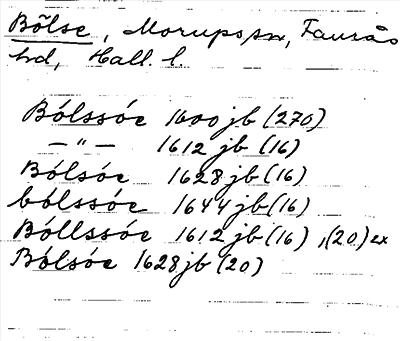 Bölse, Morups sn, Faurås
hd, Hall. l.
Bólssóe 1600 jb (270)
— " — 1612 jb (16)
Bólsóe 1628 jb (16)
bólssóe 1644 jb (16)
Bóllssóe 1612 jb (16), (20) ex
Bólsóe 1628 jb (20)